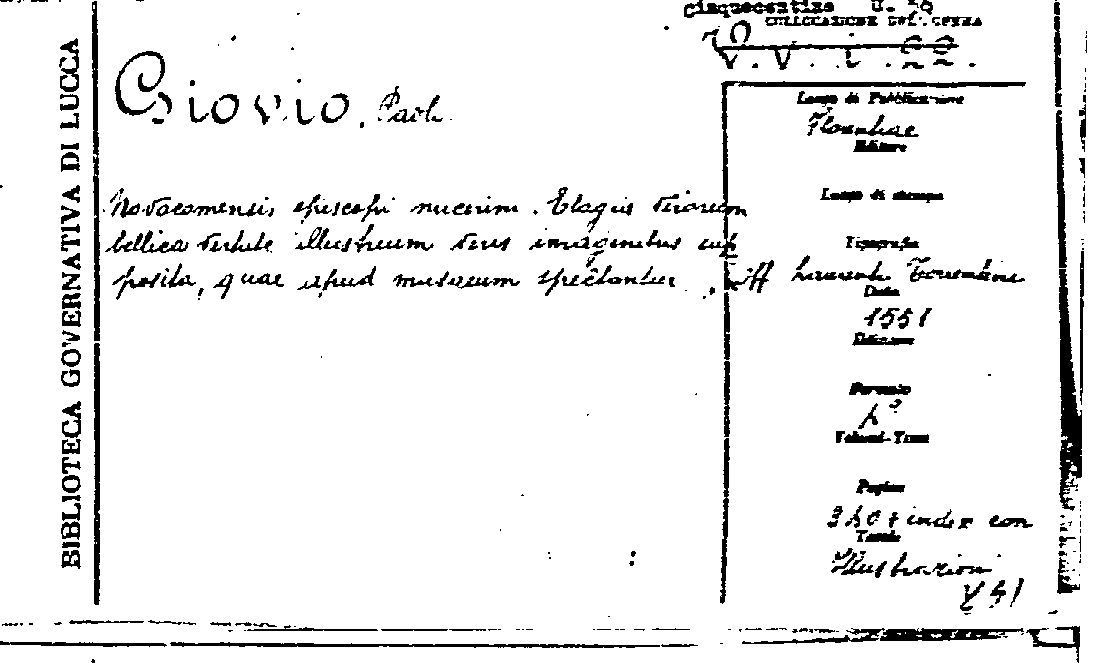 Cinquecentine
COLLOCAZIONE DELL'OPERA
V. V. i. 22.
BIBLIOTECA GOVERNATIVA DI LUCCA
Giovio, Paolo
Novocomensis episcopi nucerini. Elogia virorum
bellica virtute illustrium veris imaginibus sup
posita, quae apud musaeum spectantur
Luogo di Pubblicazione
Florentiae
Editore
Luogo di stampa
Tipografia
Laurentii Torrentini
Data
1551
Edizione
Formato
Volumi-Tomi
Pagine
340 + index con
Tavole
Illustrazioni